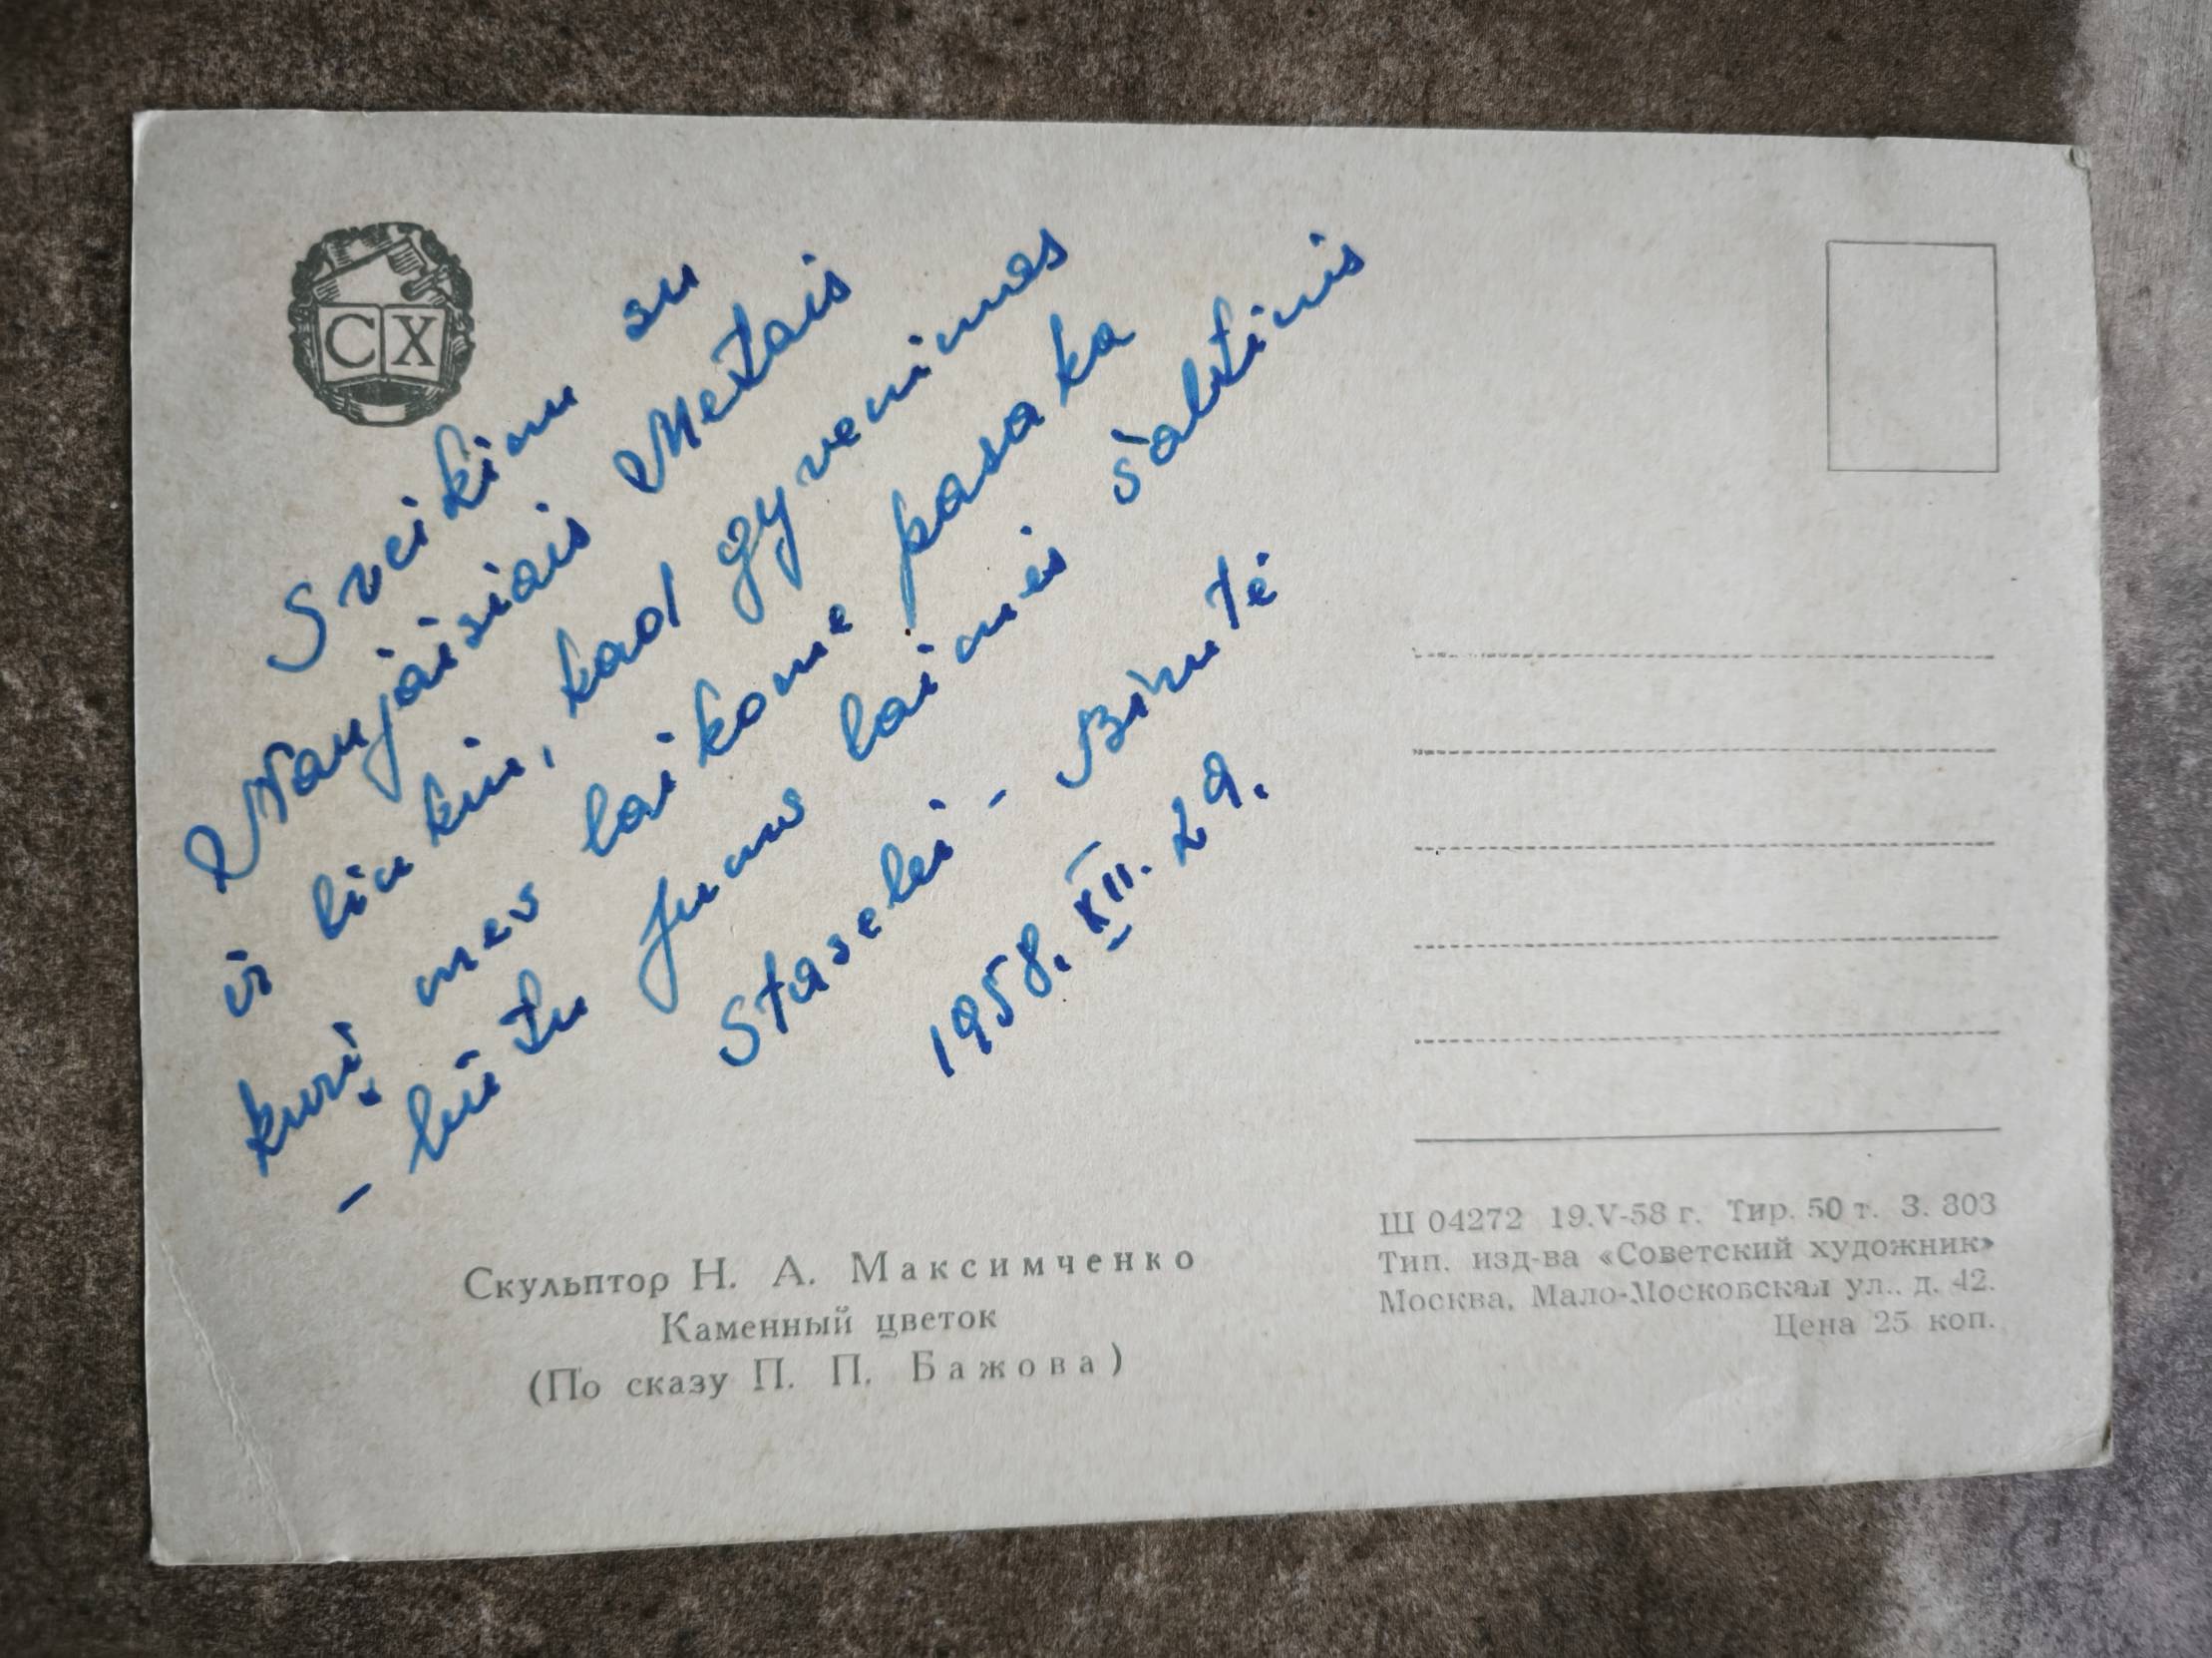 СХ
Sveikinu su
Naujaisiais Metais
ir linkiu, kad gyvenimas
kurį mes laikome pasaka
– būtu Jums laimės šaltinis
Staselei – Birutė
1958. XII. 29.
Скульптор Н. А. Максимченко
Каменный цветок
(По сказу П. П. Бажова)
Ш 04272 19.V-58 г. Тир. 50 т. З. 803
Тип. изд-ва «Советский художник»
Москва, Мало-Московская ул., д. 42.
Цена 25 коп.